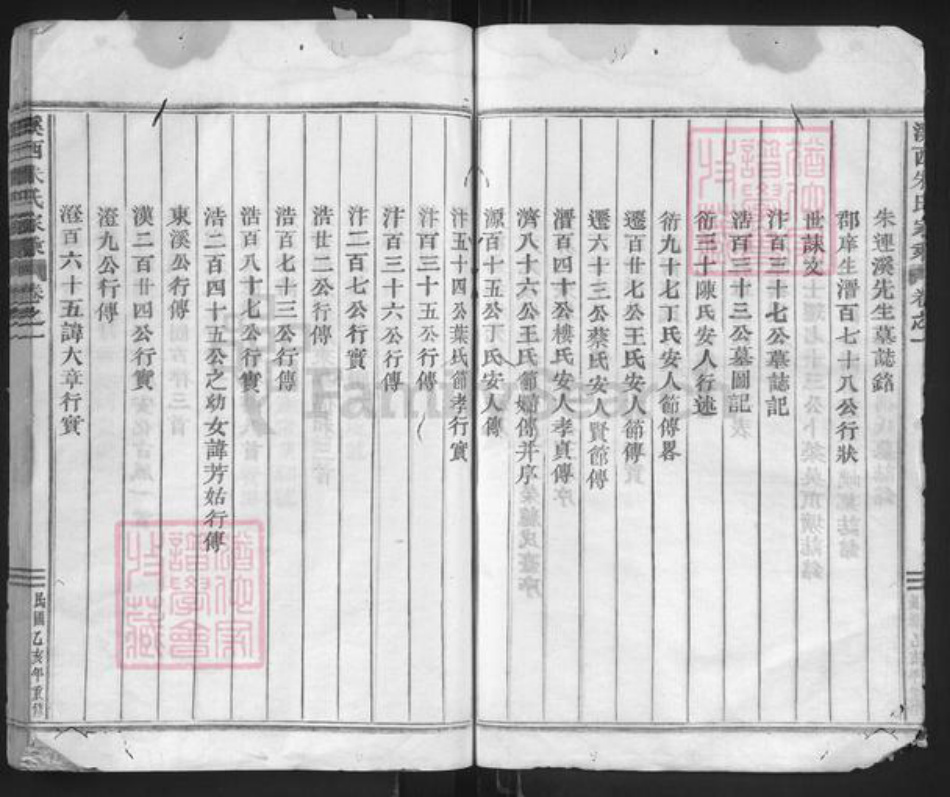 朱連溪先生墓誌銘
郡庠生潛百七十八公行狀
世誄文
汴百三十七公墓誌記
浩百三十三公墓圖記
衍三十陳氏安人行述
衍九十七丁氏安人節傳畧
遷百廿七公王氏安人節傳
遷六十三公蔡氏安人賢節傳
潛百四十公樓氏安人孝貞傳
濟八十六公王氏節婦傳并序
源百十五公丁氏安人傳
汴五十四公葉氏節孝行實
汴百三十五公行傳
汴百三十六公行傳
汴二百七公行實
浩廿二公行傳
浩百七十三公行傳
浩百八十七公行實
浩二百四十五公之幼女諱芳姑行傳
東溪公行傳
漢二百廿四公行實
澄九公行傳
澄百六十五諱大章行實
溪西朱氏家乘 卷之一
民國乙亥年重修